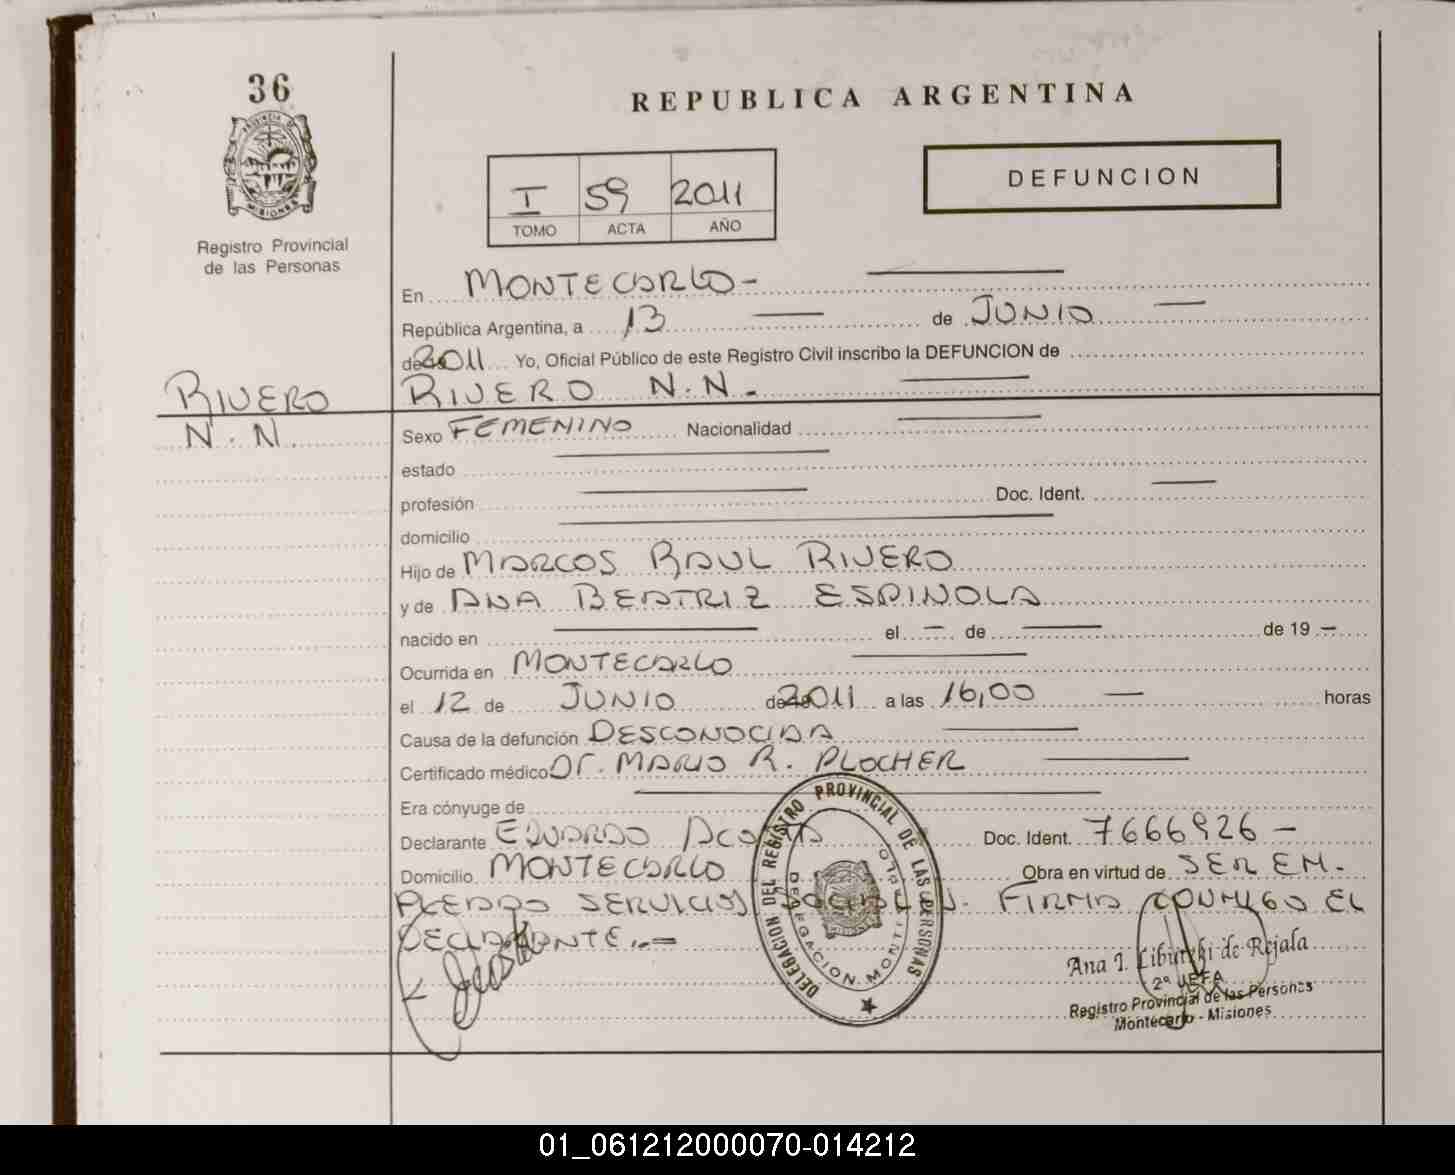 36
PROVINCIA DE
MISIONES
Registro Provincial
de las Personas
REPUBLICA ARGENTINA
I 59 2011
TOMO ACTA AÑO
DEFUNCION
En MONTECARLO-
República Argentina, a 13 de JUNIO
de 2011 Yo, Oficial Público de este Registro Civil inscribo la DEFUNCION de
RIVERO RIVERO N.N.-
N.N. Sexo FEMENINO Nacionalidad
estado
profesión Doc. Ident.
domicilio
Hijo de MARCOS RAUL RIVERO
y de ANA BEATRIZ ESPINOLA
nacido en el - de de 19 -
Ocurrida en MONTECARLO
el 12 de JUNIO de 2011 a las 16,00 horas
Causa de la defunción DESCONOCIDA
Certificado médico Dr. MARIO R. PLOCHER
Era cónyuge de
Declarante EDUARDO ACOSTA Doc. Ident. 7666926-
Domicilio MONTECARLO Obra en virtud de SER EM-
PLEADO SERVICIOS SOCIALES. FIRMA CONMIGO EL
DECLARANTE.-
DELEGACION DEL REGISTRO PROVINCIAL DE LAS PERSONAS
DELEGACION MONTECARLO
Ana I. de Rejala
2º JEFA
Registro Provincial de las Personas
Montecarlo - Misiones
01_061212000070-014212